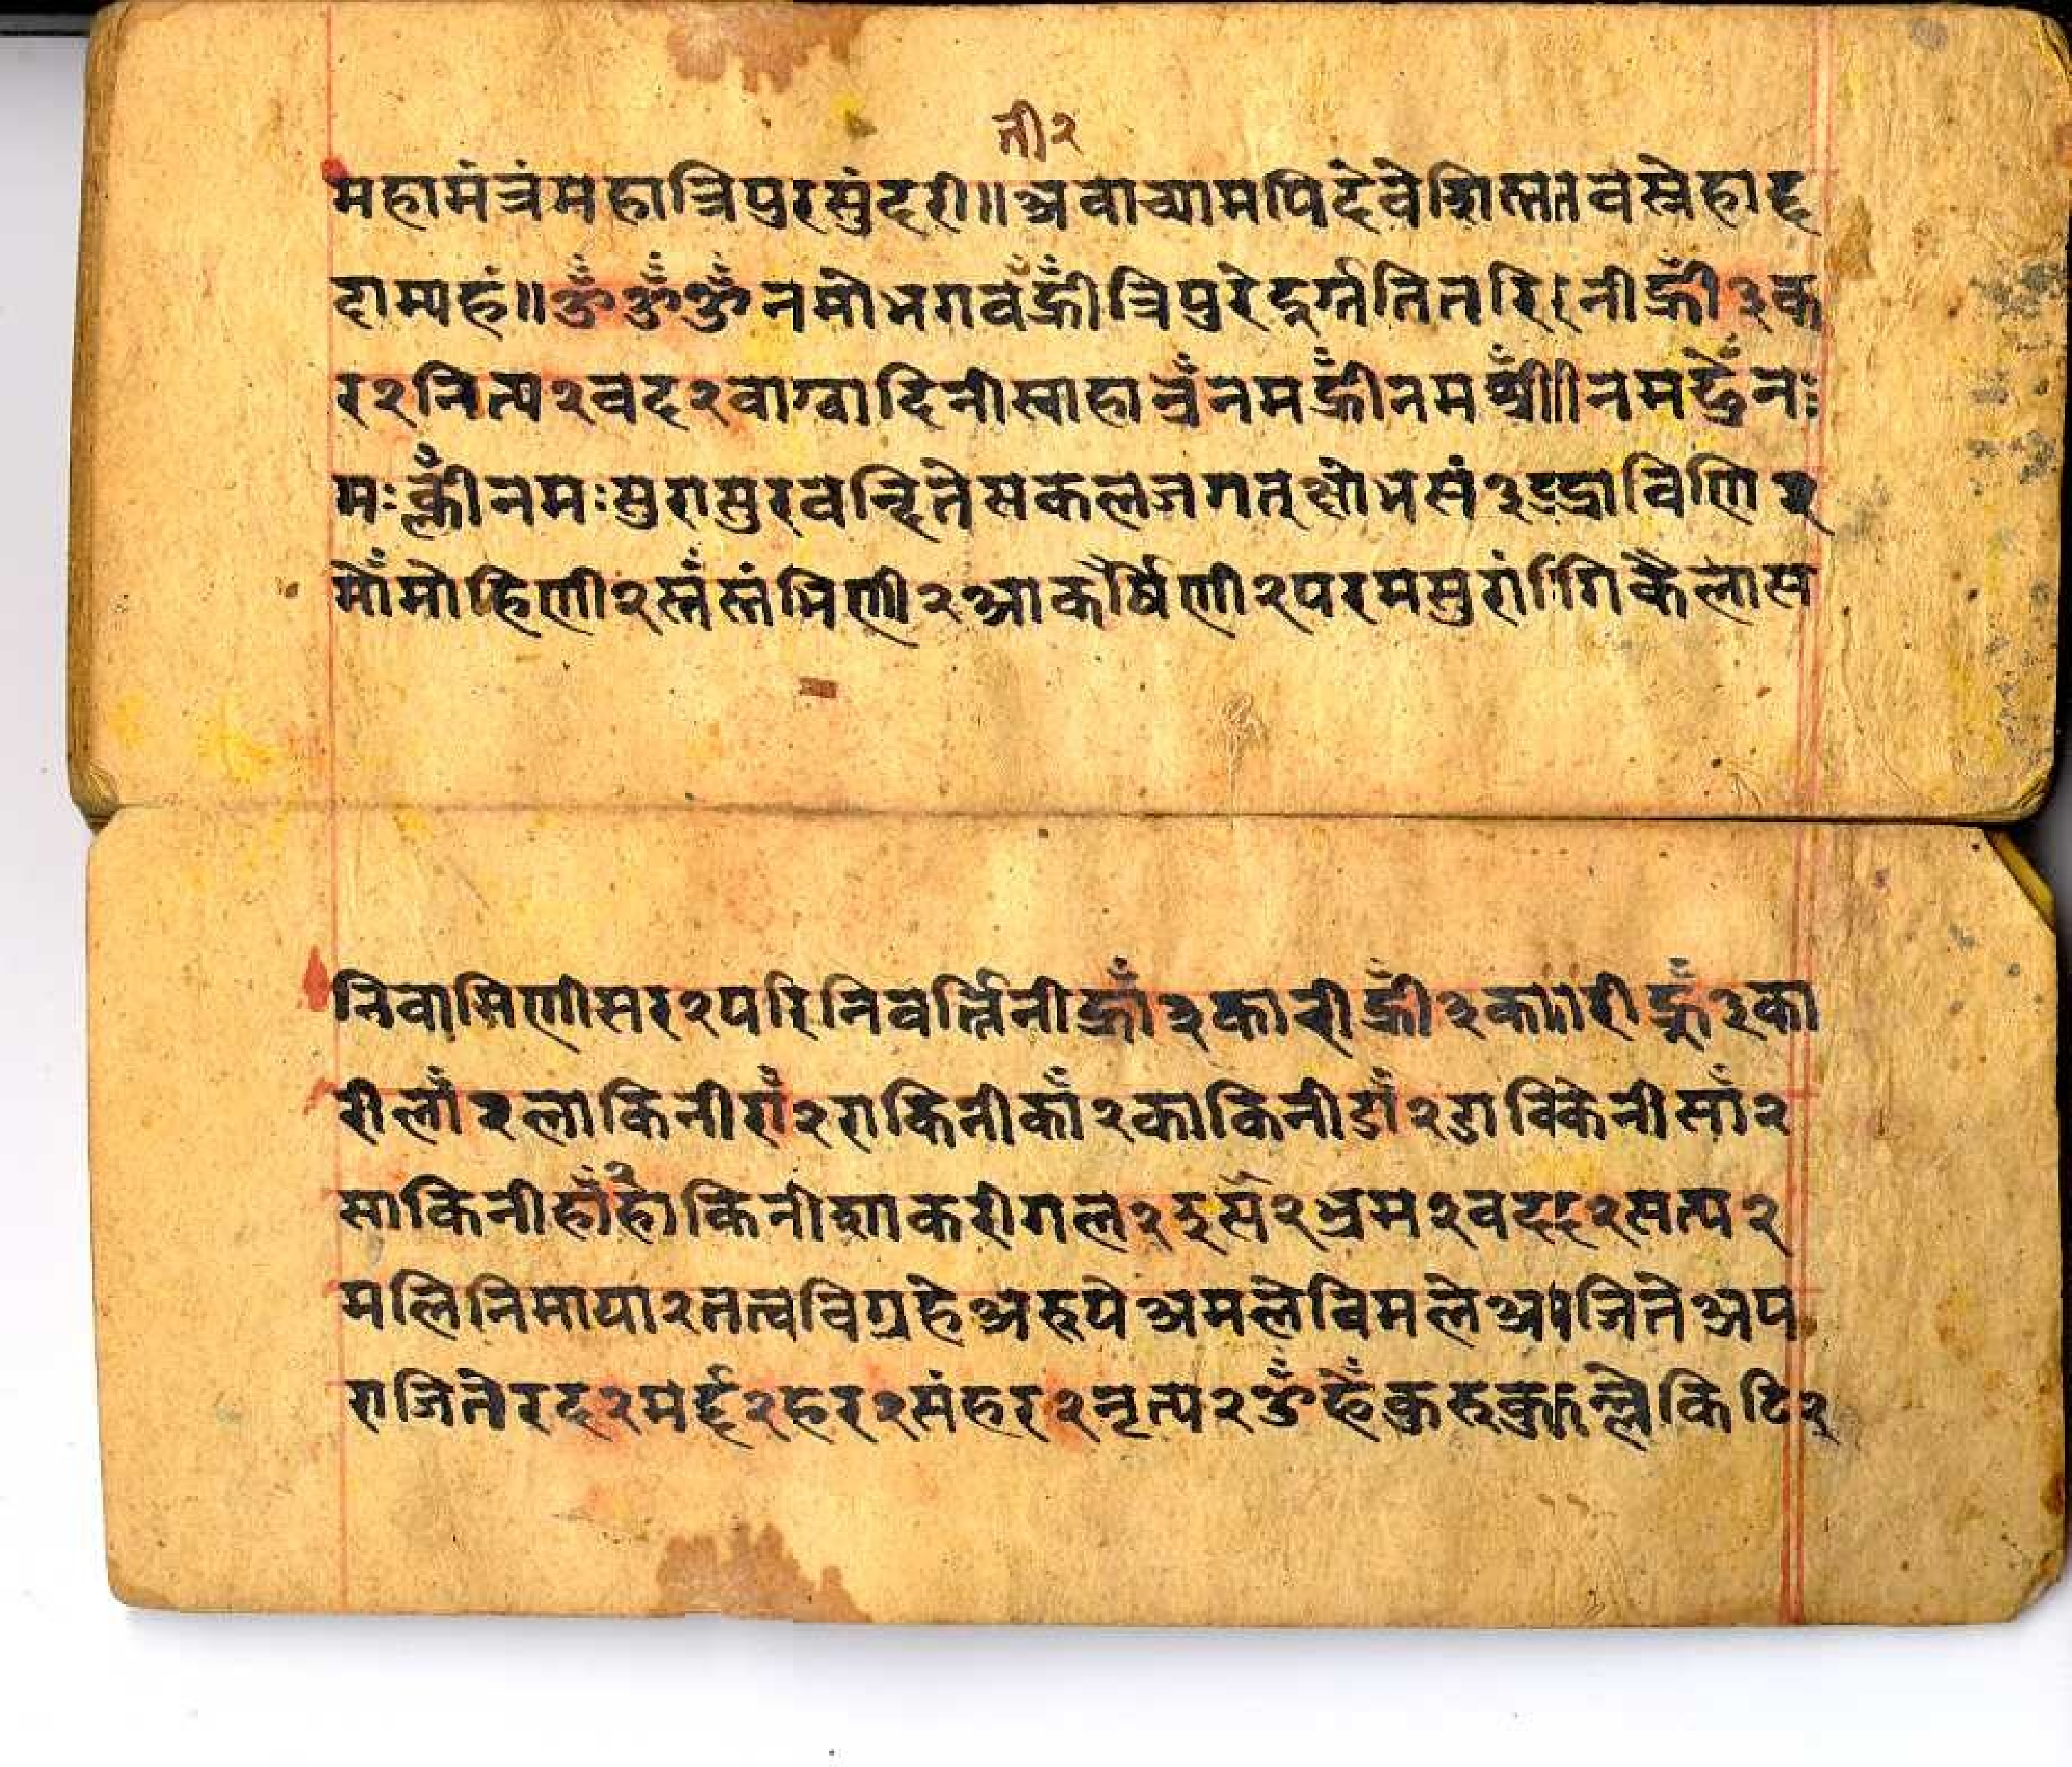 ती२
महामंत्रंमहात्रिपुरसुंदरी॥अवाच्यामपिदेवेशितवस्नेहाद्द
दाम्यहं॥ॐॐॐनमोभगवँह्रीत्रिपुरेदुर्ग्गतितरिनीह्रीँ३क
र२नित्य२वद२वाग्वादिनीस्वाहाव्रँनमह्रीँनमश्रीँनमद्रुँनः
मःक्लीँनमःसुरासुरवन्दितेसकलजगत्क्षोभसं३द्रद्राविणि२
मोँमोहिणी२स्तँस्तंभिणी२आकर्षिणी२परमसुरांगिकैलास
निवासिणीसर२परिनिवर्त्तिनीह्राँ३कारीह्रीँ३कारीह्रूँ३का
रीलाँ२लाकिनीराँ२राकिनीकाँ२काकिनीडाँ२डाकिनीसाँ२
साकिनीहाँ२हाकिनीक्षाकरीगल२द्रसँ२भ्रम२वदद२सत्य२
मलिनिमाया२तत्वविग्रहेअरुपेअमलेविमलेअजितेअप
राजितेरद२मर्द्द२हर२संहर२नृत्य२ॐह्रैँक्रुरुकुल्लेकिटि२